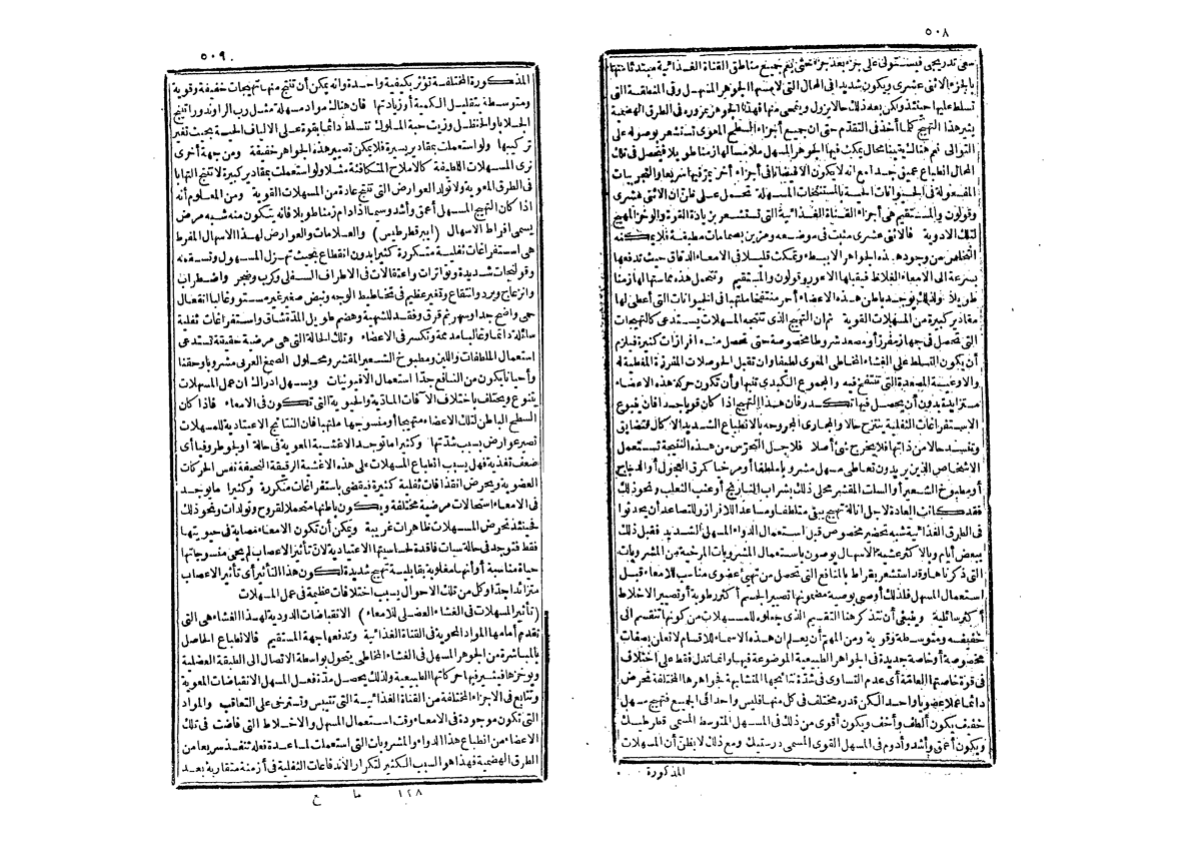 ٥٠٨
سمى تدريجى فيستولى على جزء بعد جزء حتى يتم جميع مناطق القناة الغذائية مبتدئا منها
بالجزء الاثنى عشرى ويكون شديدا فى الحال التى لامسها الجوهر المسهل وفى المنطقة التى
تسلط عليها حينئذ ولكن بعد ذلك حالا يزول وينمحى منها فهذا الجوهر بمروره فى الطرق الهضمية
يثير هذا التهيج كلما أخذ فى التقدم حتى ان جميع أجزاء السطح المعوى تستشعر بوصوله على
التوالى نعم هنالك يقينا محال يمكث فيها الجوهر المسهل ملامسا لها زمنا طويلا فيحصل فى تلك
المحال انطباع عميق جدا مع انه لا يكون الا قيضانا فى أجزاء أخر يمر فيها سريعا والتجربيات
المفعولة فى الحيوانات الحية بالمستنتجات المسهلة تحمل على ظن أن الاثنى عشرى
وقولون والمستقيم هى أجزاء القناة الغذائية التى تستشعر بزيادة القوة والوخز المهيج
لتلك الادوية فالاثنى عشرى مثبت فى موضعه ومزين بصمامات مطيفة فلا يمكنه
التخلص من وجود هذه الجواهر الا ببطء وتمكث قليلا فى الامعاء الدقاق حيث تدفعها
بسرعة الى الامعاء الغلاظ فيقبلها الاعور وقولون والمستقيم وتتحمل هذه مماستها لها زمنا
طويلا ولذلك يوجد باطن هذه الاعضاء أحمر منتفخا ملتهبا فى الحيوانات التى أعطى لها
مقادير كبيرة من المسهلات القوية ثم ان التهيج الذى تنتجه المسهلات يستدعى كالتهيجات
التى تحصل فى جهاز مفرز أو مصعد شروطا مخصوصة حتى تحصل منه افرازات كثيرة فيلزم
أن يكون التسلط على الغشاء المخاطى المعوى لطيفا وان تقبل الحوصلات المفرزة المغطية له
والاوعية المصعدة التى تنفتح فيه والمجموع الكبدى تنبها وأن تكون حركة هذه الاعضاء
متزايدة بدون أن يحصل فيها تكدر فان هذا التهيج اذا كان قويا جدا فان ينبوع
الاستفراغات الثفلية ينتزح حالا والمجارى المجروحة بالانطباع الشديد الاكال تتضايق
وتنسد حالا من ذاتها فلا يخرج شئ أصلا فلاجل التحرس من هذه النتيجة تستعمل
الاشخاص الذين يريدون تعاطى مسهل مشروبا ملطفا أو مرخيا كمرق العجول أو الدجاج
أو مطبوخ الشعير أو السلت المقشر محلى ذلك بشراب النارنج أو عنب الثعلب ونحو ذلك
فقد كانت العادة لاجل انالة تهيج يبقى متلطفا ومساعدا للافراز وللتصاعد أن يحدثوا
فى الطرق الغذائية شبه تحضير مخصوص قبل استعمال الدواء المسهل الشديد فقبل ذلك
ببعض أيام وبالاكثر عشية الاسهال يوصون باستعمال المشروبات المرخية من المشروبات
التى ذكرناها وقد استشعر بقراط بالمنافع التى تحصل من تهيئ عضوى مناسب للامعاء قبل
استعمال المسهل فلذلك أوصى بوصية مضمونها تصيير الجسم أكثر رطوبة أو تصيير الاخلاط
أكثر سائلية وينبغى أن نتذكر هنا التقسيم الذى جعلوه للمسهلات من كونها تنقسم الى
خفيفة ومتوسطة وقوية ومن المهم أن يعلم ان هذه الاسماء للاقسام لا تعلن بصفات
مخصوصة أو خاصة جديدة فى الجواهر الطبيعية الموضوعة فيها وانما تدل فقط على اختلاف
فى قوة خاصتها العامة أى عدم التساوى فى شدة نتائجها المتشابهة فجواهرها المختلفة تحرض
دائما عملا عضويا واحدا لكن قدره مختلف فى كل منها فليس واحدا فى الجميع فتهيج مسهل
خفيف يكون ألطف وأخف ويكون أقوى من ذلك فى المسهل المتوسط المسمى قطرطيك
ويكون أعمق وأشد وأدوم فى المسهل القوى المسمى درستيك ومع ذلك لا يظن أن المسهلات
المذكورة
٥٠٩
المذكورة المختلفة تؤثر بكيفية واحدة وانه يمكن أن تنتج منها تهيجات خفيفة وقوية
ومتوسطة بتقليل الكمية أو زيادتها فان هنالك مواد مسهلة مثل رب الراوند وراتنج
الجلابا والحنظل وزيت حبة الملوك تتسلط دائما بقوة على الالياف الحية بحيث تغير
تركيبها ولو استعملت بمقادير يسيرة فلا يمكن تصيير هذه الجواهر خفيفة ومن جهة أخرى
نرى المسهلات اللطيفة كالاملاح المتكافئة مثلا ولو استعملت بمقادير كبيرة لا تنتج التهابا
فى الطرق المعوية ولا تولد العوارض التى تنتج عادة من المسهلات القوية ومن المعلوم أنه
اذا كان التهيج المسهل أعمق وأشد وسيما اذا دام زمنا طويلا فانه يتكون منه شبه مرض
يسمى افراط الاسهال (ايبرقطرطيس) والعلامات والعوارض لهذا الاسهال المفرط
هى استفراغات ثفلية متكررة كثيرا بدون انقطاع بحيث تهزل المسهول وتسقمه
وقولنجات شديدة وتواترات واعتقالات فى الاطراف السفلى وكرب وضجر واضطراب
وانزعاج وبرد وانتقاع وتغير عظيم فى تخاطيط الوجه ونبض صغير غير مستو وغالبا انفعال
حمى واضح جدا وسهر ثم قرق وفقد للشهية وهضم طويل المدة شاق واستفراغات ثفلية
سائلة دائما وغالبا مدممة وتكسر فى الاعضاء وتلك الحالة التى هى مرضية حقيقة تستدعى
استعمال الملطفات واللبن ومطبوخ الشعير المقشر ومحلول الصمغ العربى مشروبا وحقنا
وأحيانا يكون من النافع جدا استعمال الافيونيات ويسهل ادراك ان عمل المسهلات
يتنوع ويختلف باختلاف الآفات المادية والحيوية التى تكون فى الامعاء فاذا كان
السطح الباطن لتلك الاعضاء متهيجا أو منسوجها ملتهبا فان النتائج الاعتيادية للمسهلات
تصير عوارض بسبب شدتها وكثيرا ما توجد الاغشية المعوية فى حالة أوليلوطروفيا أى
ضعف تغذية فهل بسبب انطباع المسهلات على هذه الاغشية الرقيقة النحيفة نفس الحركات
العضوية ويحرض انقذافات ثفلية كثيرة فيقضى باستفراغات متكررة وكثيرا ما توجد
فى الامعاء استحالات مرضية مختلفة ويكون باطنها متحملا لقروح وتولدات ونحو ذلك
فحينئذ تحرض المسهلات ظاهرات غريبة ويمكن أن تكون الامعاء مصابة فى حيويتها
فقط فتوجد فى حالة سبات فاقدة لحساسيتها الاعتيادية لان تأثير الاعصاب لم يحى منسوجاتها
حياة مناسبة أو أنها مغلوبة بقابلية تهيج شديدة لكون هذا التأثير أى تأثير الاعصاب
متزائدا جدا وكل من تلك الاحوال يسبب اختلافات عظيمة فى عمل المسهلات
(تأثير المسهلات فى الغشاء العضلى للامعاء) الانقباضات الدورية لهذا الغشاء هى التى
تقدم أمامها المواد المحوية فى القناة الغذائية وتدفعها جهة المستقيم فالانطباع الحاصل
بالمباشرة من الجوهر المسهل فى الغشاء المخاطى يتحول بواسطة الاتصال الى الطبقة العضلية
ويوخزها فيثير فيها حركاتها الطبيعية ولذلك يحصل مدة فعل المسهل الانقباضات المعوية
وتتابع فى الاجزاء المختلفة من القناة الغذائية التى تتيبس وتسترخى على التعاقب والمواد
التى تكون موجودة فى الامعاء وقت استعمال المسهل والاخلاط التى فاضت فى تلك
الاعضاء من انطباع هذا الدواء والمشروبات التى استعملت لمساعدة فعله تنفذ سريعا من
الطرق الهضمية فهذا هو السبب الكثير لتكرار الاندفاعات الثفلية فى أزمنة متقاربة بعد
١٢٨ ما ع